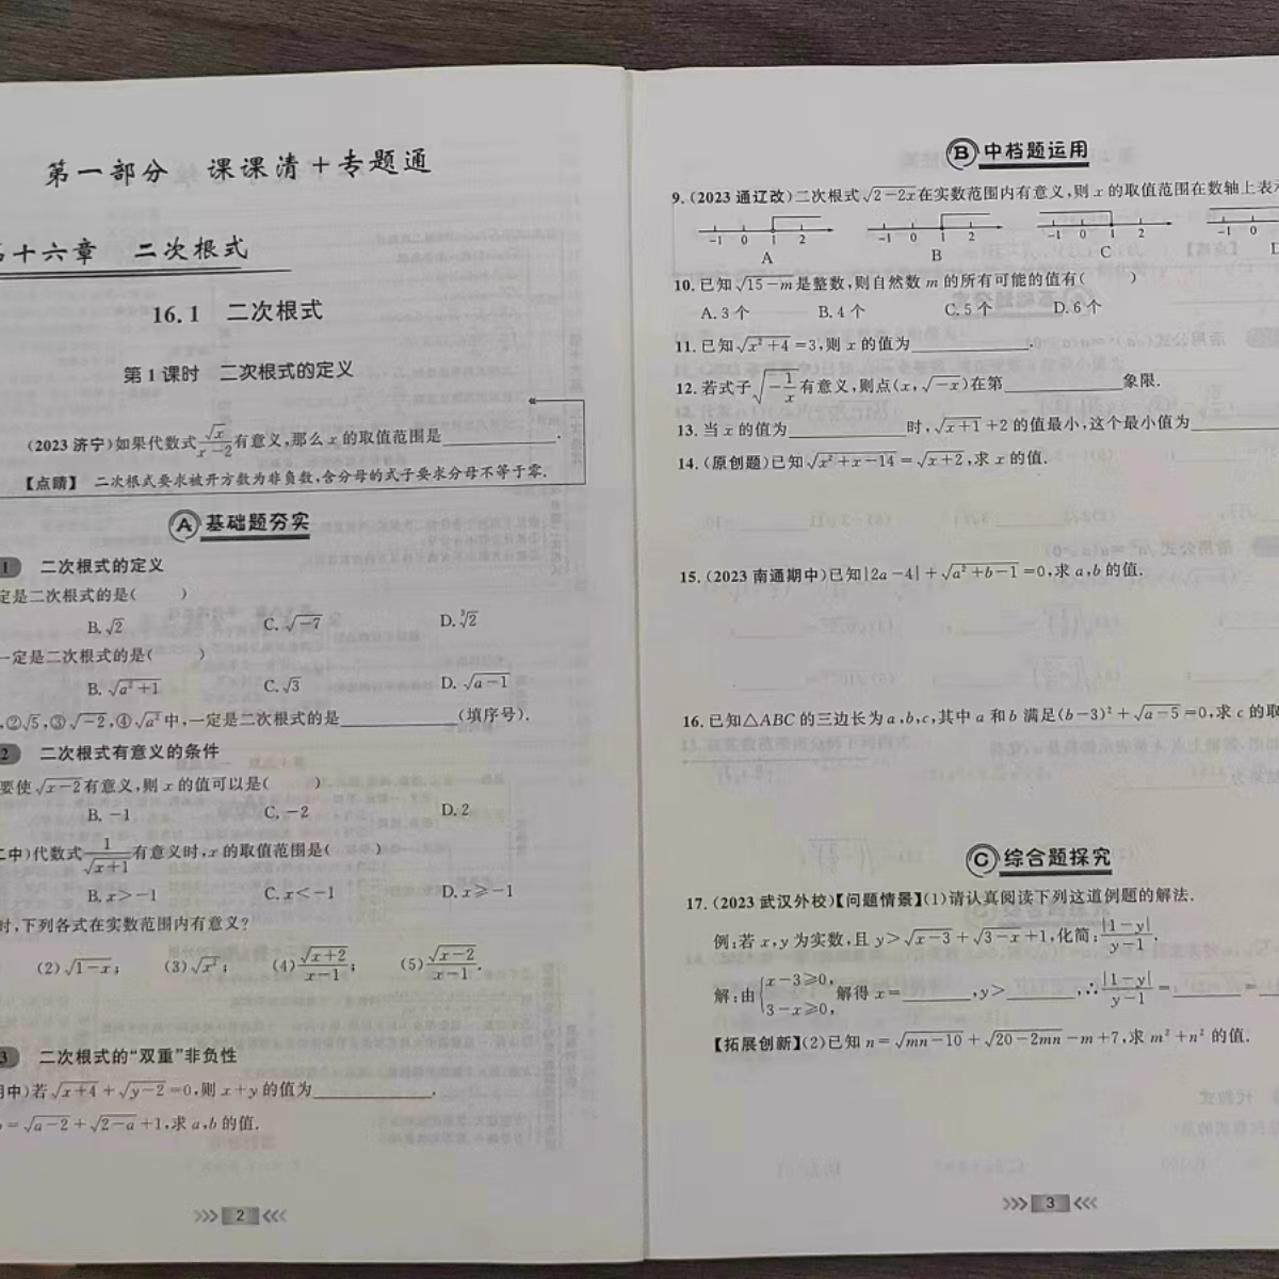 第一部分 课课清+专题通
十六章 二次根式
16.1 二次根式
第1课时 二次根式的定义
(2023济宁)如果代数式√x/(x−2)有意义,那么x的取值范围是________.
【点睛】 二次根式要求被开方数为非负数,含分母的式子要求分母不等于零.
A 基础题夯实
1 二次根式的定义
定是二次根式的是( )
B.√2 C.√−7 D.³√2
一定是二次根式的是( )
B.√(a²+1) C.√3 D.√(a−1)
,②√5,③√−2,④√a²中,一定是二次根式的是________(填序号).
2 二次根式有意义的条件
要使√(x−2)有意义,则x的值可以是( )
B.−1 C.−2 D.2
中)代数式1/√(x+1)有意义时,x的取值范围是( )
B.x>−1 C.x<−1 D.x⩾−1
时,下列各式在实数范围内有意义?
(2)√(1−x); (3)√x²; (4)√(x+2)/(x−1); (5)√(x−2)/(x−1).
3 二次根式的“双重”非负性
中)若√(x+4)+√(y−2)=0,则x+y的值为________.
=√(a−2)+√(2−a)+1,求a,b的值.
2
B 中档题运用
9.(2023通辽改)二次根式√(2−2x)在实数范围内有意义,则x的取值范围在数轴上表
−1 0 1 2 −1 0 1 2 −1 0 1 2 −1 0
A B C
10.已知√(15−m)是整数,则自然数m的所有可能的值有( )
A.3个 B.4个 C.5个 D.6个
11.已知√(x²+4)=3,则x的值为________.
12.若式子√(−1/x)有意义,则点(x,√−x)在第________象限.
13.当x的值为________时,√(x+1)+2的值最小,这个最小值为________
14.(原创题)已知√(x²+x−14)=√(x+2),求x的值.
15.(2023南通期中)已知|2a−4|+√(a²+b−1)=0,求a,b的值.
16.已知△ABC的三边长为a,b,c,其中a和b满足(b−3)²+√(a−5)=0,求c的取
C 综合题探究
17.(2023武汉外校)【问题情景】(1)请认真阅读下列这道例题的解法.
例:若x,y为实数,且y>√(x−3)+√(3−x)+1,化简:|1−y|/(y−1).
解:由{x−3⩾0, 3−x⩾0, 解得x=________,y>________,∴|1−y|/(y−1)=________=
【拓展创新】(2)已知n=√(mn−10)+√(20−2mn)−m+7,求m²+n²的值.
3